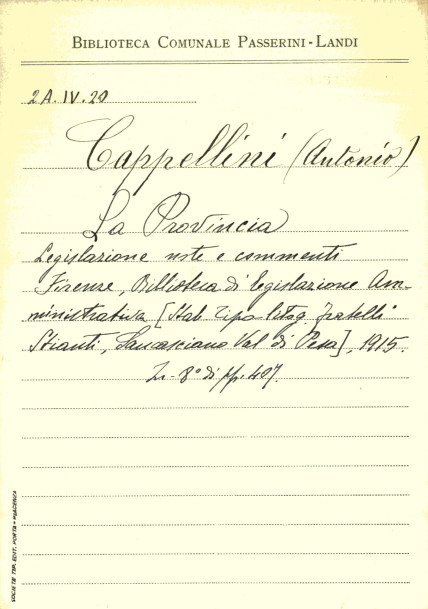 BIBLIOTECA COMUNALE PASSERINI-LANDI
2A.IV.20
Cappellini (Antonio)
La Provincia
Legislazione note e commenti
Firenze, Biblioteca di legislazione Am-
ministrativa [Stab. Tipo-litog. fratelli
Stianti, Sancasciano Val di Pesa], 1915.
In-8° di pp. 407.
SOCIETÀ TIP. EDIT. PORTA - PIACENZA